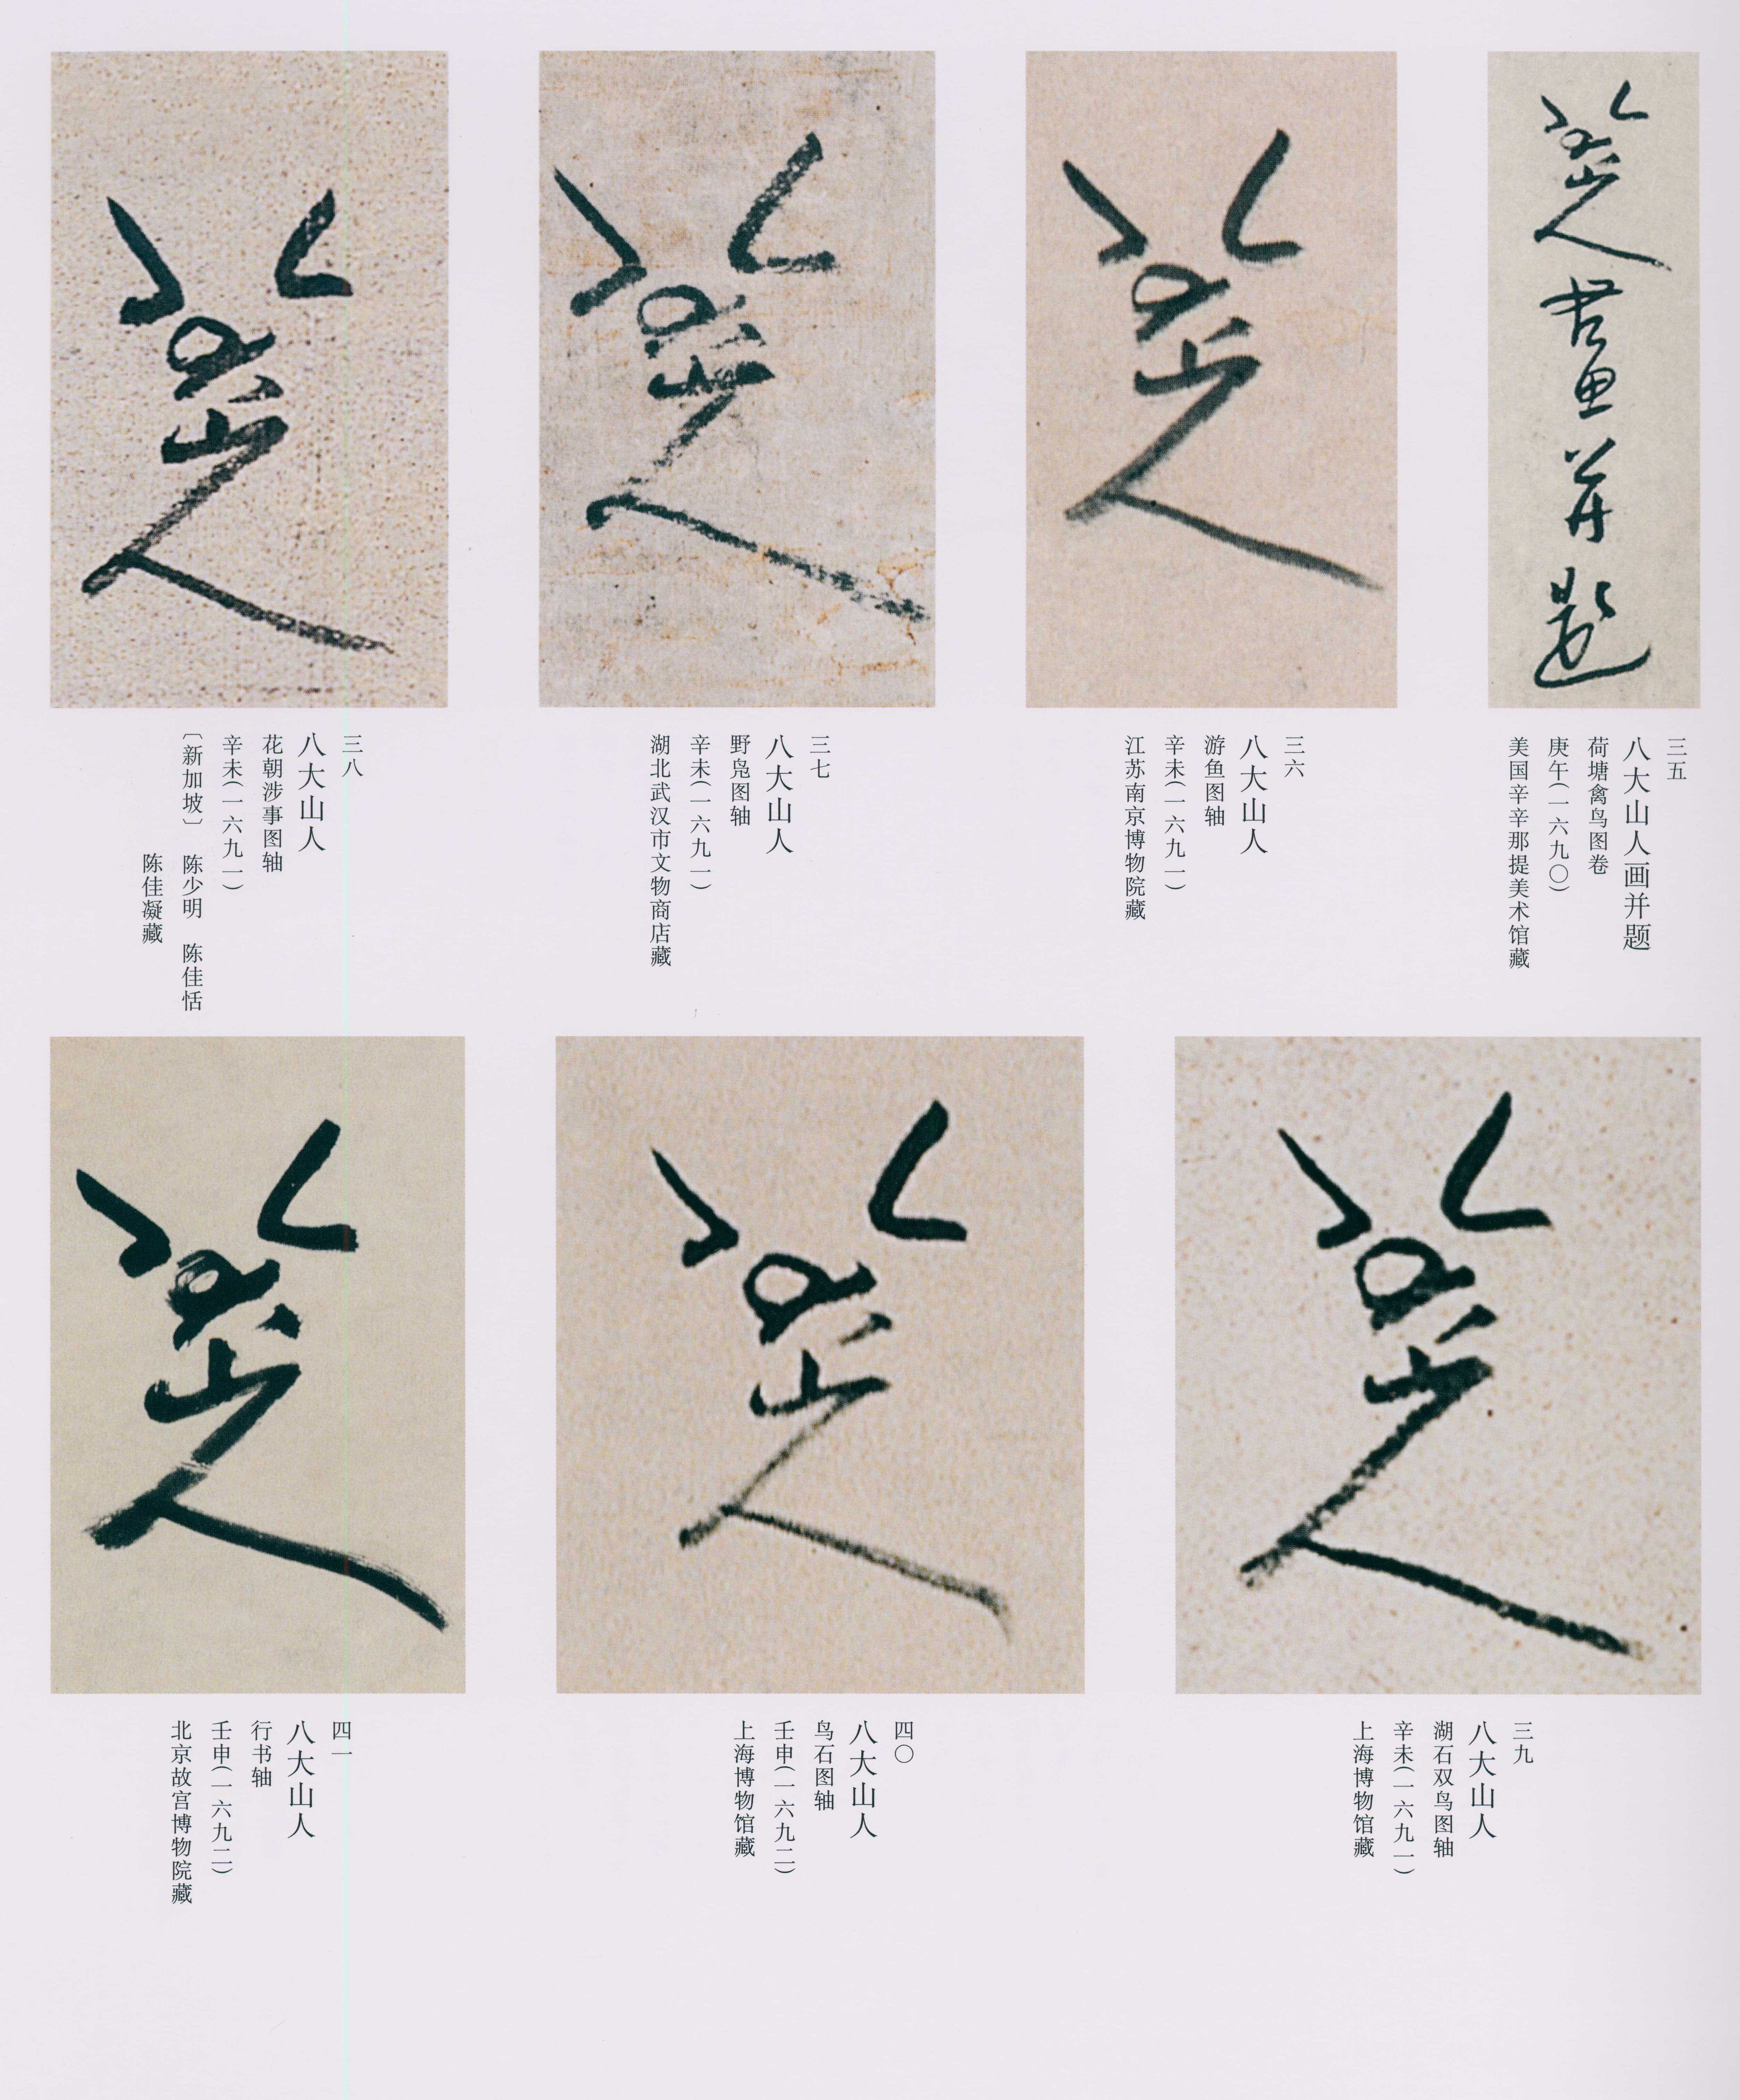 八大山人畫并題
三五
八大山人画并题
荷塘禽鸟图卷
庚午(一六九〇)
美国辛辛那提美术馆藏
八大山人
三六
八大山人
游鱼图轴
辛未(一六九一)
江苏南京博物院藏
八大山人
三七
八大山人
野凫图轴
辛未(一六九一)
湖北武汉市文物商店藏
八大山人
三八
八大山人
花朝涉事图轴
辛未(一六九一)
〔新加坡〕 陈少明 陈佳恬
陈佳凝藏
八大山人
三九
八大山人
湖石双鸟图轴
辛未(一六九一)
上海博物馆藏
八大山人
四〇
八大山人
鸟石图轴
壬申(一六九二)
上海博物馆藏
八大山人
四一
八大山人
行书轴
壬申(一六九二)
北京故宫博物院藏